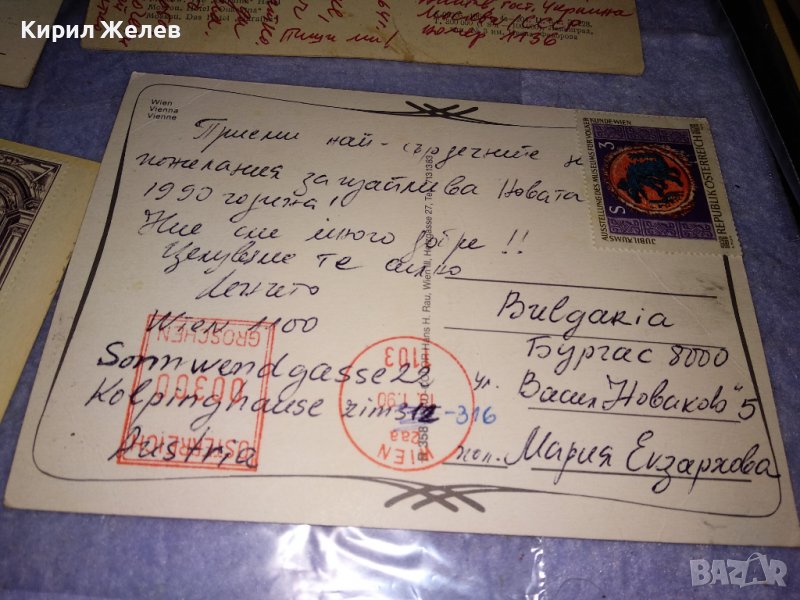 Кирил Желев
Moscou. Hotel "Ukraïna"
Пиши ми!
гост. Украина
Москва
номер 1136
Wien
Vienna
Vienne
Приеми най-сърдечните
пожелания за щастлива Новата
1990 година!
Ние сме много добре!!
Целуваме те силно
Wien 1100
Sonnwendgasse 22
Kolpinghause zim 312 -316
Austria
Hans H. Rau, Wien III,
AUSSTELLUNG DES MUSEUMS FÜR VÖLKERKUNDE-WIEN
S 3
JUBILÄUMS
REPUBLIK ÖSTERREICH
Bulgaria
Бургас 8000
ул. Васил Новаков 5
пол. Мария Екзархова
ÖSTERREICH
00300
GROSCHEN
1103
1.90
WIEN
BAZAR